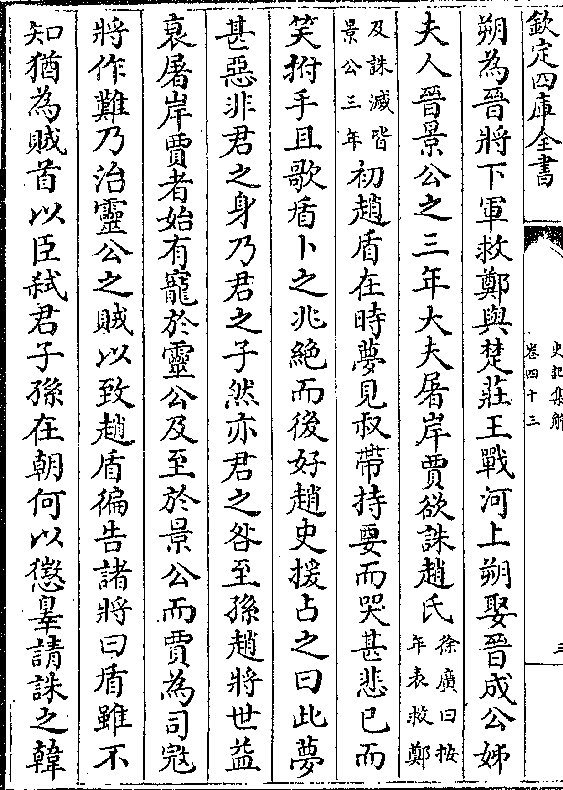 欽定四庫全書
史記集解
卷四十三
三
朔為晉將下軍救鄭與楚莊王戰河上朔娶晉成公姊
夫人晉景公之三年大夫屠岸賈欲誅趙氏徐廣曰按年表救鄭
及誅滅皆景公三年初趙盾在時夢見叔帶持要而哭甚悲已而
笑拊手且歌盾卜之兆絶而後好趙史援占之曰此夢
甚惡非君之身乃君之子然亦君之咎至孫趙將世益
衰屠岸賈者始有寵於靈公及至於景公而賈為司冦
將作難乃治靈公之賊以致趙盾徧告諸將曰盾雖不
知猶為賊首以臣弑君子孫在朝何以懲辠請誅之韓